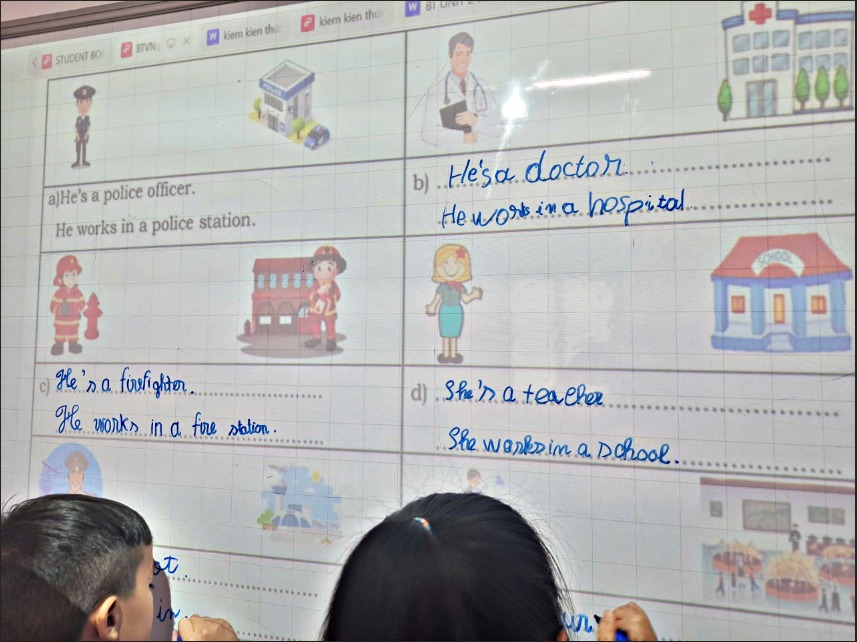 STUDENT BO
BTVN
kiem kien thứ
kiem kien thứ
BT UNIT
POLICE
a)He's a police officer.
He works in a police station.
b) He's a doctor.
He works in a hospital.
SCHOOL
c) He's a firefighter.
He works in a fire station.
d) She's a teacher
She works in a school.
ot.
in